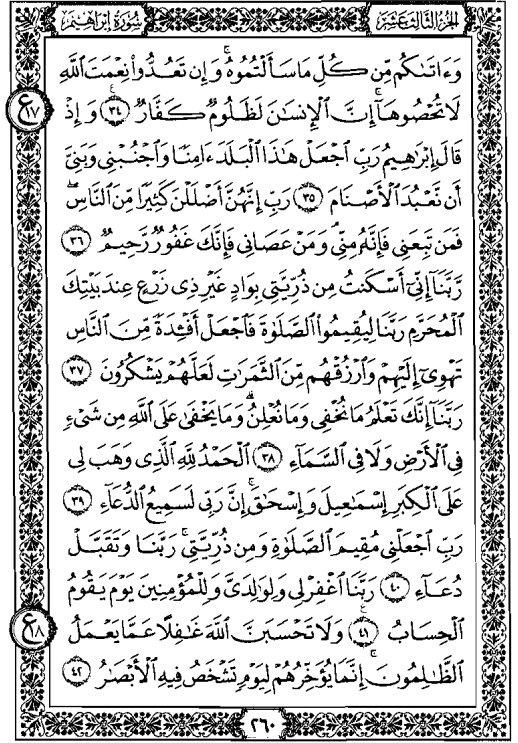 الجزء الثالث عشر
سورة إبراهيم
وَءَاتَىٰكُم مِّن كُلِّ مَا سَأَلْتُمُوهُ ۚ وَإِن تَعُدُّوا۟ نِعْمَتَ ٱللَّهِ
لَا تُحْصُوهَآ ۗ إِنَّ ٱلْإِنسَٰنَ لَظَلُومٌ كَفَّارٌ ٣٤ وَإِذْ
ع ١٧
قَالَ إِبْرَٰهِيمُ رَبِّ ٱجْعَلْ هَٰذَا ٱلْبَلَدَ ءَامِنًا وَٱجْنُبْنِى وَبَنِىَّ
أَن نَّعْبُدَ ٱلْأَصْنَامَ ٣٥ رَبِّ إِنَّهُنَّ أَضْلَلْنَ كَثِيرًا مِّنَ ٱلنَّاسِ ۖ
فَمَن تَبِعَنِى فَإِنَّهُۥ مِنِّى ۖ وَمَنْ عَصَانِى فَإِنَّكَ غَفُورٌ رَّحِيمٌ ٣٦
رَّبَّنَآ إِنِّىٓ أَسْكَنتُ مِن ذُرِّيَّتِى بِوَادٍ غَيْرِ ذِى زَرْعٍ عِندَ بَيْتِكَ
ٱلْمُحَرَّمِ رَبَّنَا لِيُقِيمُوا۟ ٱلصَّلَوٰةَ فَٱجْعَلْ أَفْـِٔدَةً مِّنَ ٱلنَّاسِ
تَهْوِىٓ إِلَيْهِمْ وَٱرْزُقْهُم مِّنَ ٱلثَّمَرَٰتِ لَعَلَّهُمْ يَشْكُرُونَ ٣٧
رَبَّنَآ إِنَّكَ تَعْلَمُ مَا نُخْفِى وَمَا نُعْلِنُ ۗ وَمَا يَخْفَىٰ عَلَى ٱللَّهِ مِن شَىْءٍ
فِى ٱلْأَرْضِ وَلَا فِى ٱلسَّمَآءِ ٣٨ ٱلْحَمْدُ لِلَّهِ ٱلَّذِى وَهَبَ لِى
عَلَى ٱلْكِبَرِ إِسْمَٰعِيلَ وَإِسْحَٰقَ ۚ إِنَّ رَبِّى لَسَمِيعُ ٱلدُّعَآءِ ٣٩
رَبِّ ٱجْعَلْنِى مُقِيمَ ٱلصَّلَوٰةِ وَمِن ذُرِّيَّتِى ۚ رَبَّنَا وَتَقَبَّلْ
دُعَآءِ ٤٠ رَبَّنَا ٱغْفِرْ لِى وَلِوَٰلِدَىَّ وَلِلْمُؤْمِنِينَ يَوْمَ يَقُومُ
ٱلْحِسَابُ ٤١ وَلَا تَحْسَبَنَّ ٱللَّهَ غَٰفِلًا عَمَّا يَعْمَلُ
ع ١٨
ٱلظَّٰلِمُونَ ۚ إِنَّمَا يُؤَخِّرُهُمْ لِيَوْمٍ تَشْخَصُ فِيهِ ٱلْأَبْصَٰرُ ٤٢
٢٦٠